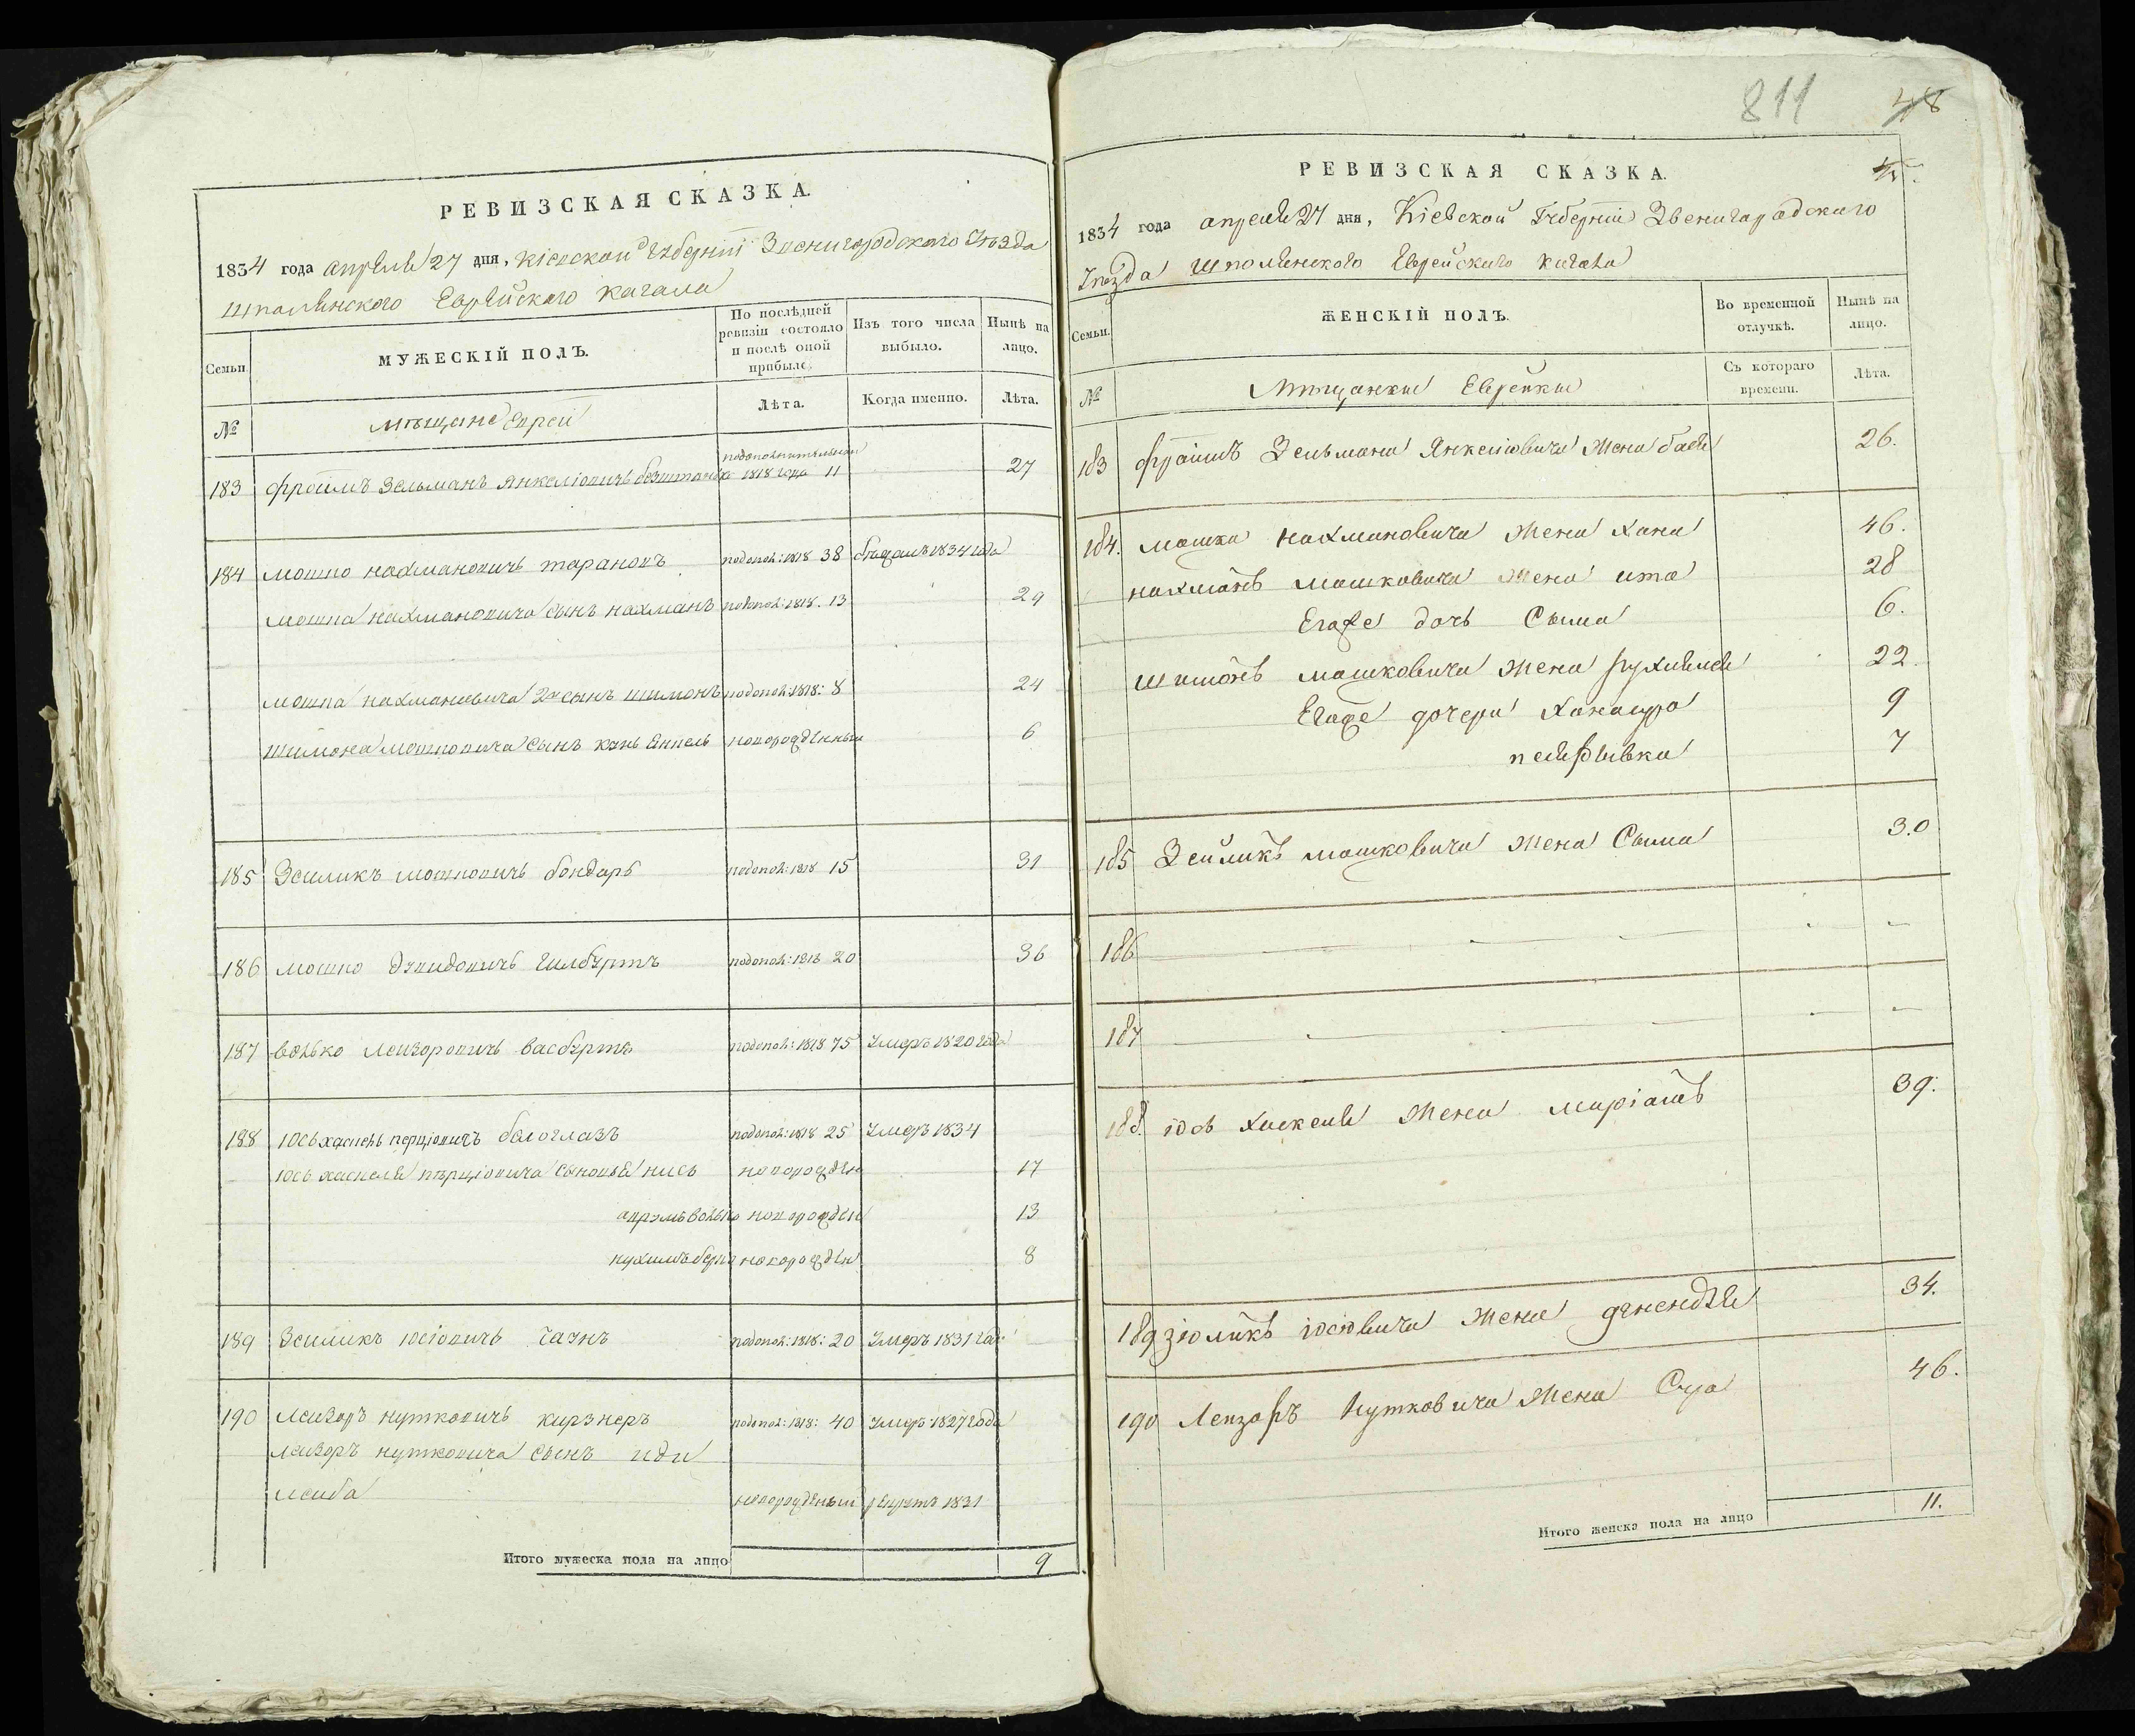 РЕВИЗСКАЯ СКАЗКА.
1834 года апреля 27 дня, Кіевской Губерніи Звенигородского Уезда
Шполянского Еврейского кагала
Семьи.
МУЖЕСКІЙ ПОЛЪ.
По послѣдней ревизіи состояло и послѣ оной прибыло.
Изъ того числа выбыло.
Нынѣ на лицо.
№
Мѣщане Евреи
Лѣта.
Когда именно.
Лѣта.
183 Фроимъ Зельманъ Янкеліовичъ 1818 года 11 27
184 Мошко Нахмановичъ Тарановъ подопол: 1818 38 1834 года
Мошка Нахмановича сынъ Нахманъ подопол: 1818. 13 29
Мошка Нахмановича 2й сынъ Шимонъ подопол: 1818: 8 24
Шимона Мошковича сынъ Янкель новорожденный 6
185 Зейликъ Мошковичъ Бондарь подопол: 1818 15 31
186 Мошко Дувидовичъ Гилбуртъ подопол: 1818 20 36
187 Волько Лейзоровичъ Васбуртъ подопол: 1818 75 Умеръ 1820 года
188 Іось Хаскель Перціовичъ Белоглазъ подопол: 1818 25 Умеръ 1834
Іось Хаскеля Перціовича сыновья новорожден 17
Волько новорожден 13
Нухимъ Берко новорожден 8
189 Зейликъ Іосіовичъ подопол: 1818: 20 Умеръ 1831 год
190 Лейзоръ Нутковичъ Кирзнеръ подопол: 1818: 40 Умеръ 1827 года
Лейзоръ Нутковича сынъ Иди
Лейба новорожденный рекрутъ 1831
Итого мужеска пола на лицо 9
811 48
РЕВИЗСКАЯ СКАЗКА.
1834 года апреля 27 дня, Кіевской Губерніи Звенигородского
Уезда Шполянского Еврейского кагала
Семьи.
ЖЕНСКІЙ ПОЛЪ.
Во временной отлучкѣ.
Нынѣ на лицо.
№
Мѣщанки Еврейки
Съ котораго времени.
Лѣта.
183 Фроимъ Зельмана Янкеліовича жена Бася 26.
184. Мошка Нахмановича жена Хана 46.
Нахманъ Мошковича жена Ита 28
Егоже дочь Сыма 6.
Шимонъ Мошковича жена Рухля 22.
Егоже дочери Ханасура 9
7
185 Зейликъ Мошковича жена Сыма 30
186 — — — —
187 — — — —
188. Іось Хаскеля жена Маріамъ 39.
189 Зіоликъ Іосіовича жена 34.
190 Лейзоръ Нутковича жена Сура 46.
Итого женска пола на лицо 11.